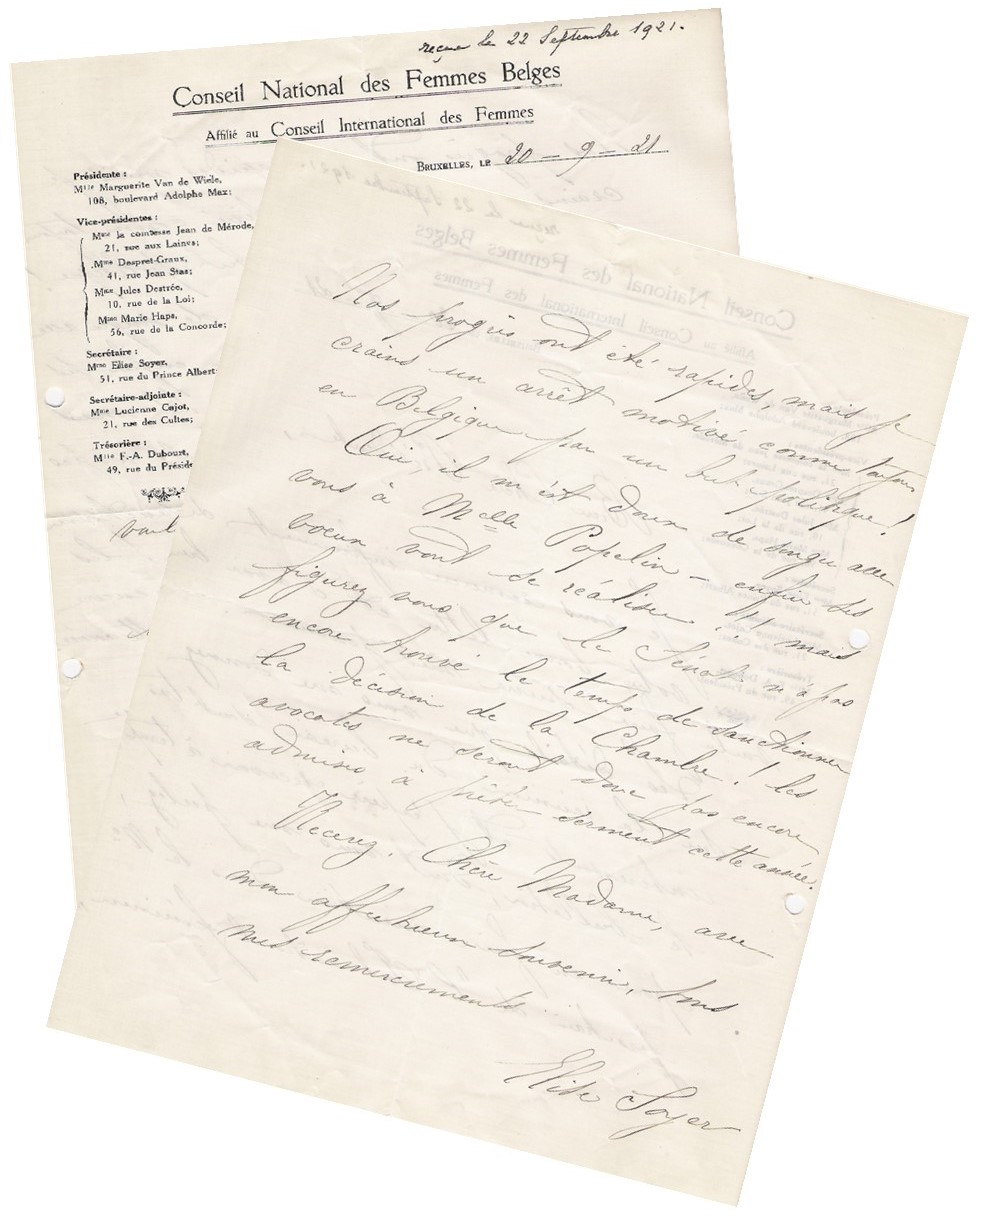 reçue le 22 Septembre 1921.
Conseil National des Femmes Belges
Affilié au Conseil International des Femmes
Bruxelles, le 20 - 9 - 21
Présidente :
Mlle Marguerite Van de Wiele,
108, boulevard Adolphe Max;
Vice-présidentes :
Mme la comtesse Jean de Mérode,
21, rue aux Laines;
Mme Despret-Graux,
41, rue Jean Stas;
Mme Jules Destrée,
10, rue de la Loi;
Mme Marie Haps,
56, rue de la Concorde;
Secrétaire :
Mme Elise Soyer,
51, rue du Prince Albert
Secrétaire-adjointe :
Mme Lucienne Cajot,
21, rue des Cultes;
Trésorière :
Mlle F.-A. Dubourt,
49, rue du Préside
Nos progrès ont été rapides, mais je
crains un arrêt motivé comme toujours
en Belgique par un but politique !
Oui, il m'est doux de songer avec
vous à Melle Popelin - enfin ses
voeux vont se réaliser !! mais
figurez vous que le Sénat n'a pas
encore trouvé le temps de sanctionner
la décision de la Chambre ! les
avocates ne seront donc pas encore
admises à prêter serment cette année.
Recevez, Chère Madame, avec
mon affectueux souvenir, tous
mes remerciements.
Elise Soyer